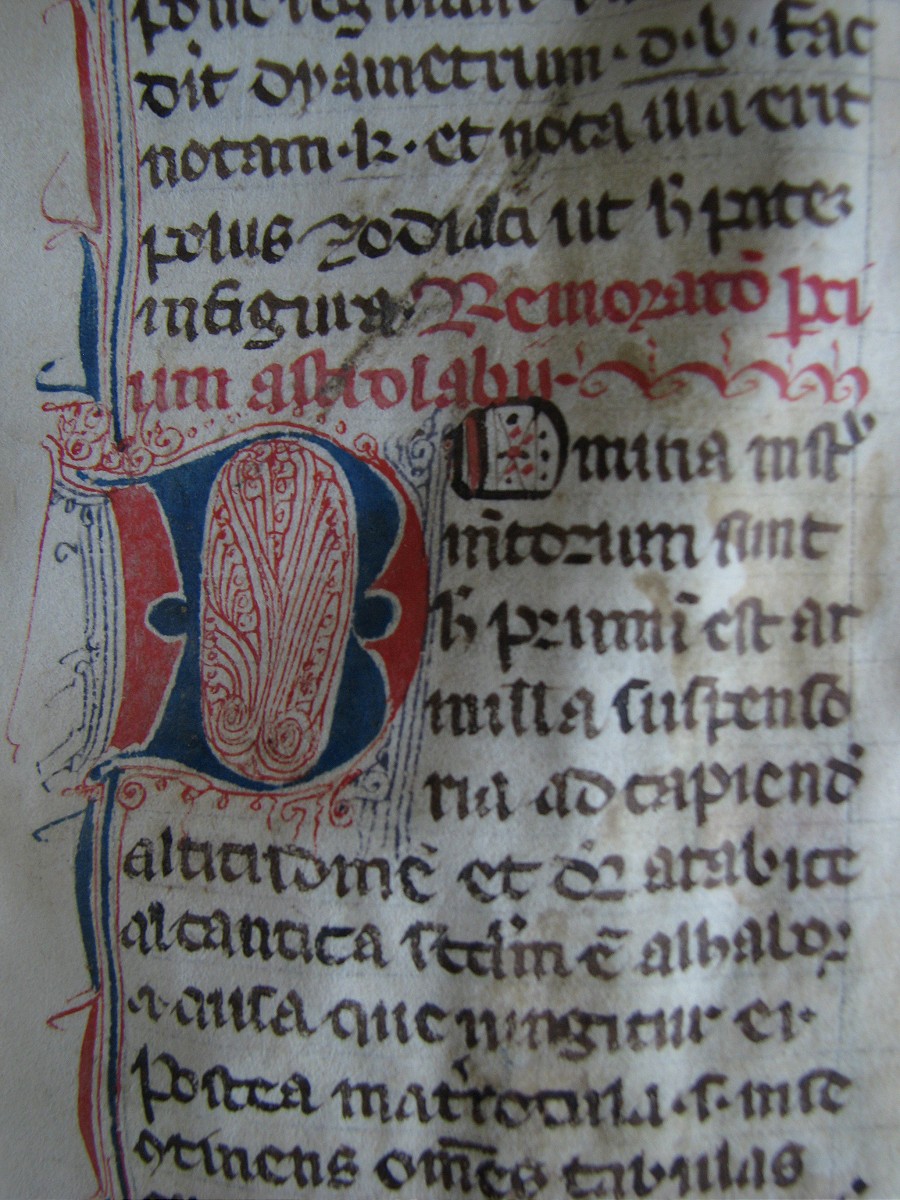 pone regulam
dit dyametrum · d · b · Fac
notam · k · et nota illa erit
polus zodiaci ut h̄ patet
in figura. Remoratō parti
um astrolabii·
Nomina inst̅u
m̄torum sunt
h̄ primū est ar
milla suspenso
ria ad capiend̄
altitudinē et dr̄ arabice
alcantica scd̄m ē alhabor
ansa que iungitur ei·
Postea mat̄ rotula · s · in se
ↄtinens om̄es tabulas